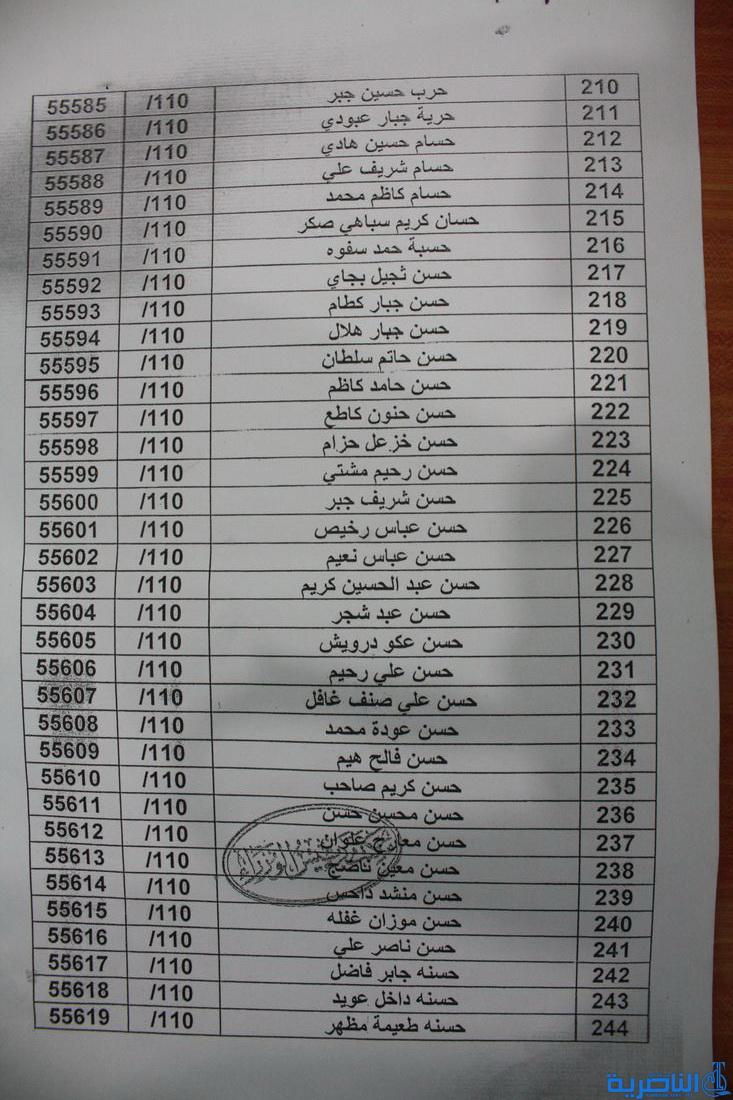 210 حرب حسين جبر 110/ 55585
211 حرية جبار عبودي 110/ 55586
212 حسام حسين هادي 110/ 55587
213 حسام شريف علي 110/ 55588
214 حسام كاظم محمد 110/ 55589
215 حسان كريم سباهي صكر 110/ 55590
216 حسبة حمد سفوه 110/ 55591
217 حسن ثجيل بجاي 110/ 55592
218 حسن جبار كطام 110/ 55593
219 حسن جبار هلال 110/ 55594
220 حسن حاتم سلطان 110/ 55595
221 حسن حامد كاظم 110/ 55596
222 حسن حنون كاطع 110/ 55597
223 حسن خزعل حزام 110/ 55598
224 حسن رحيم مشتي 110/ 55599
225 حسن شريف جبر 110/ 55600
226 حسن عباس رخيص 110/ 55601
227 حسن عباس نعيم 110/ 55602
228 حسن عبد الحسين كريم 110/ 55603
229 حسن عبد شجر 110/ 55604
230 حسن عكو درويش 110/ 55605
231 حسن علي رحيم 110/ 55606
232 حسن علي صنف غافل 110/ 55607
233 حسن عودة محمد 110/ 55608
234 حسن فالح هيم 110/ 55609
235 حسن كريم صاحب 110/ 55610
236 حسن محسن حسن 110/ 55611
237 حسن معارج علوان 110/ 55612
238 حسن معين ناصح 110/ 55613
239 حسن منشد داحس 110/ 55614
240 حسن موزان غفله 110/ 55615
241 حسن ناصر علي 110/ 55616
242 حسنه جابر فاضل 110/ 55617
243 حسنه داخل عويد 110/ 55618
244 حسنه طعيمة مظهر 110/ 55619
الناصرية